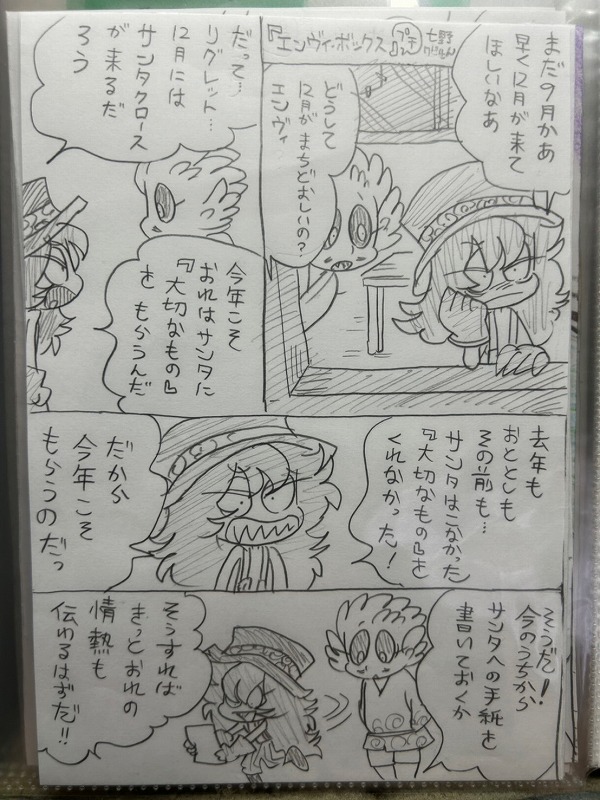 『エンヴィ・ボックス『プチ』』
まだ9月かあ
早く12月が来て
ほしいなあ
どうして
12月がまちどおしいの?
エンヴィ
だって…
リグレット…
12月には
サンタクロース
が来るだ
ろう
今年こそ
おれはサンタに
『大切なもの』
をもらうんだ
去年も
おととしも
その前も…
サンタはこなかった
『大切なもの』を
くれなかった!
だから
今年こそ
もらうのだっ
そうだ!
今のうちから
サンタへの手紙を
書いておくか
そうすれば
きっとおれの
情熱も
伝わるはずだ!!